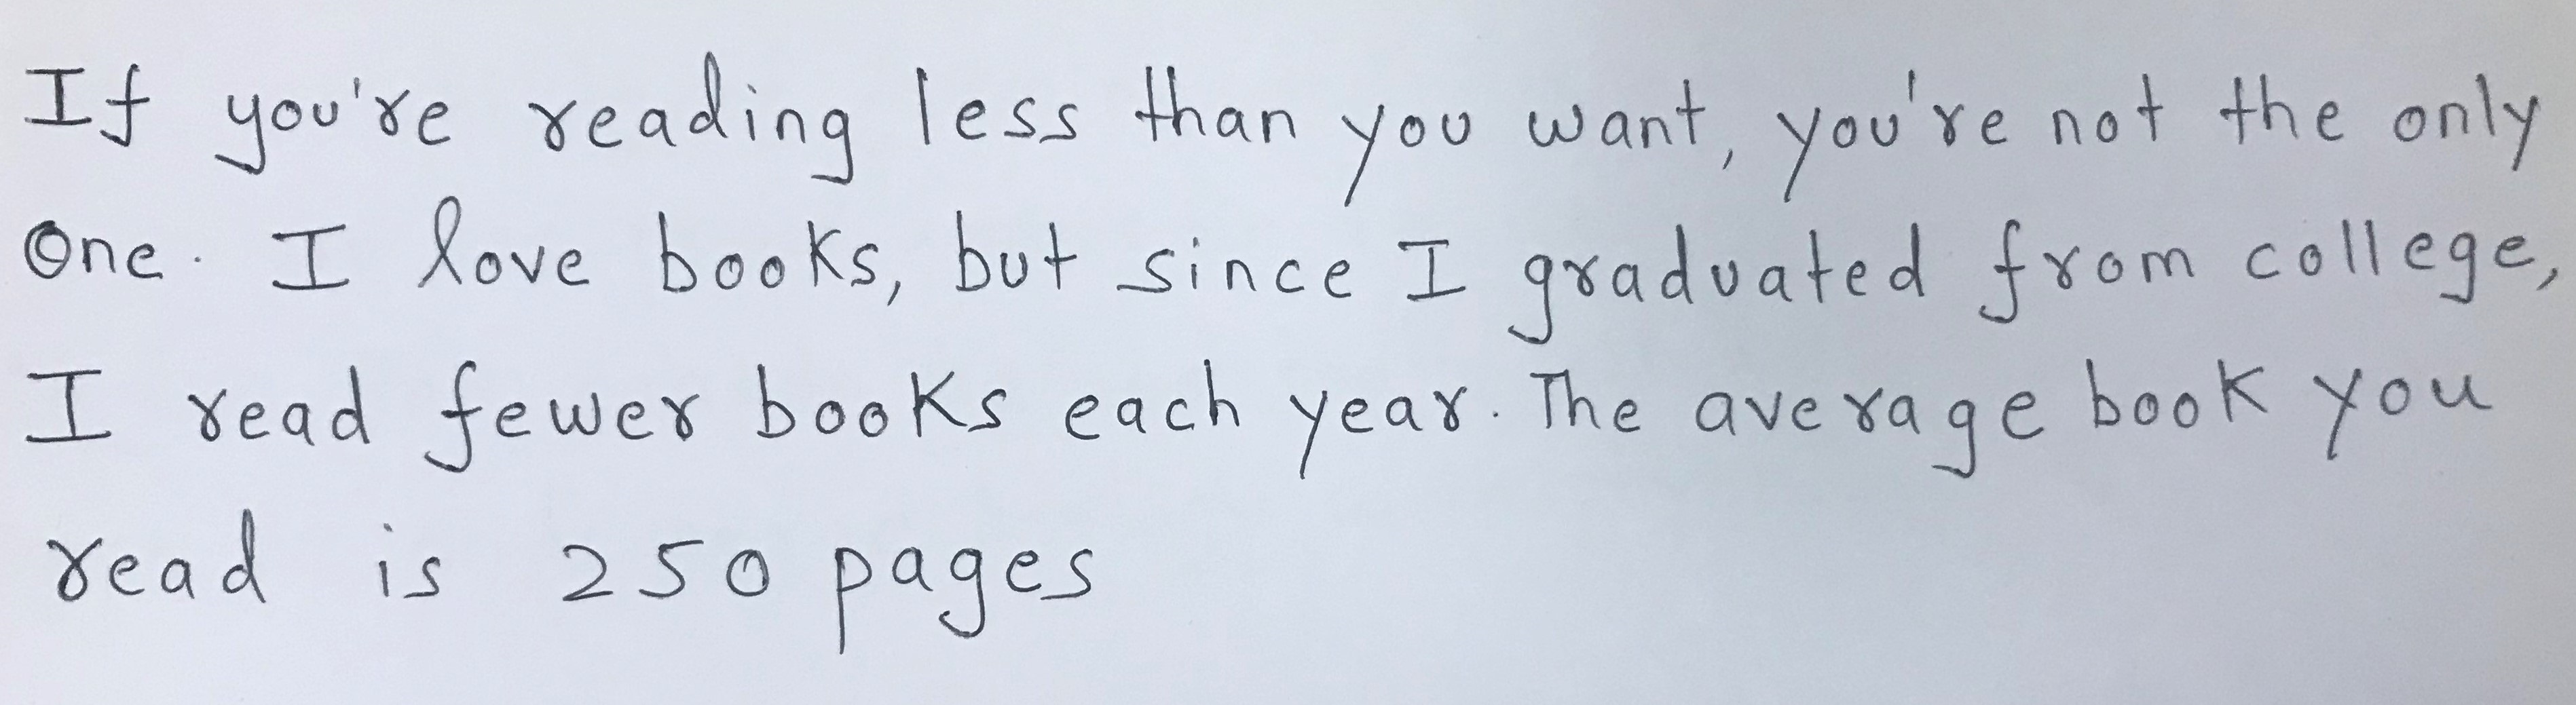 If you're reading less than you want, you're not the only
One. I love books, but since I graduated from college,
I read fewer books each year. The average book you
read is 250 pages